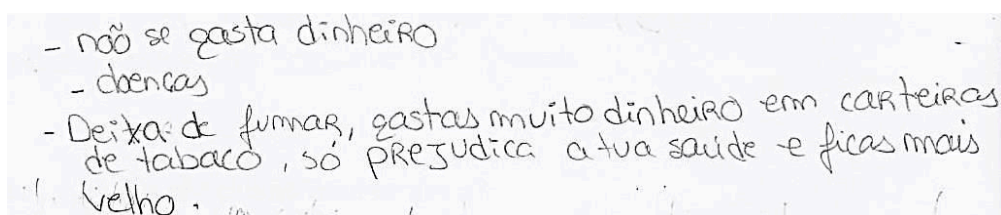 - não se gasta dinheiro
- doenças
- Deixa de fumar, gastas muito dinheiro em carteiras
de tabaco, só prejudica a tua saúde e ficas mais
velho.